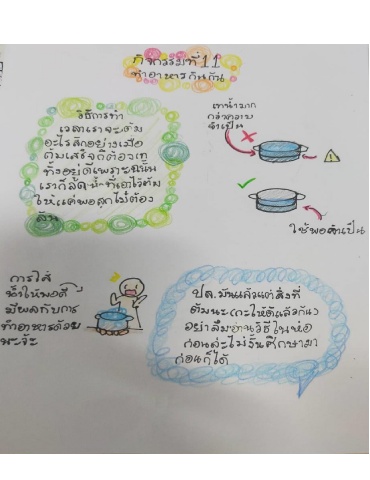 กิจกรรมที่ 11
ทำอาหารกันกัน
วิธีการทำ
เวลาเราจะต้ม
อะไรสักอย่างเมื่อ
ต้มเสร็จก็ต้องเท
ทิ้งอยู่ดีเพราะฉะนั้น
เราก็ลดน้ำที่เอาไว้ต้ม
ให้แต่พอสุกไม่ต้อง
ล้น
เทน้ำมาก
กว่าความ
จำเป็น
ใช้พอจำเป็น
การใส่
น้ำให้พอดี
มีผลกับการ
ทำอาหารด้วย
นะจ๊ะ
ปล.มันแล้วแต่สิ่งที่
ต้มนะ(กะให้ดีแล้วกัน)
อย่าลืมอ่านวิธีในห่อ
ก่อนล่ะไม่งั้นศึกษามา
ก่อนก็ได้